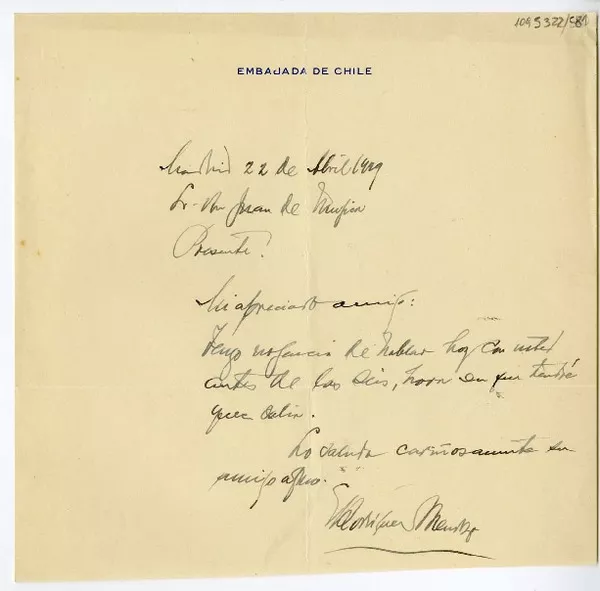 1093322/981
EMBAJADA DE CHILE
Madrid 22 de Abril 1929
Sr. Dn Juan de Mujica
Presente!
Mi apreciado amigo:
Tengo urgencia de hablar hoy con usted
antes de las seis, hora en que tendré
que salir.
Lo saluda cariñosamente su
amigo afmo.
E Rodríguez Mendoza